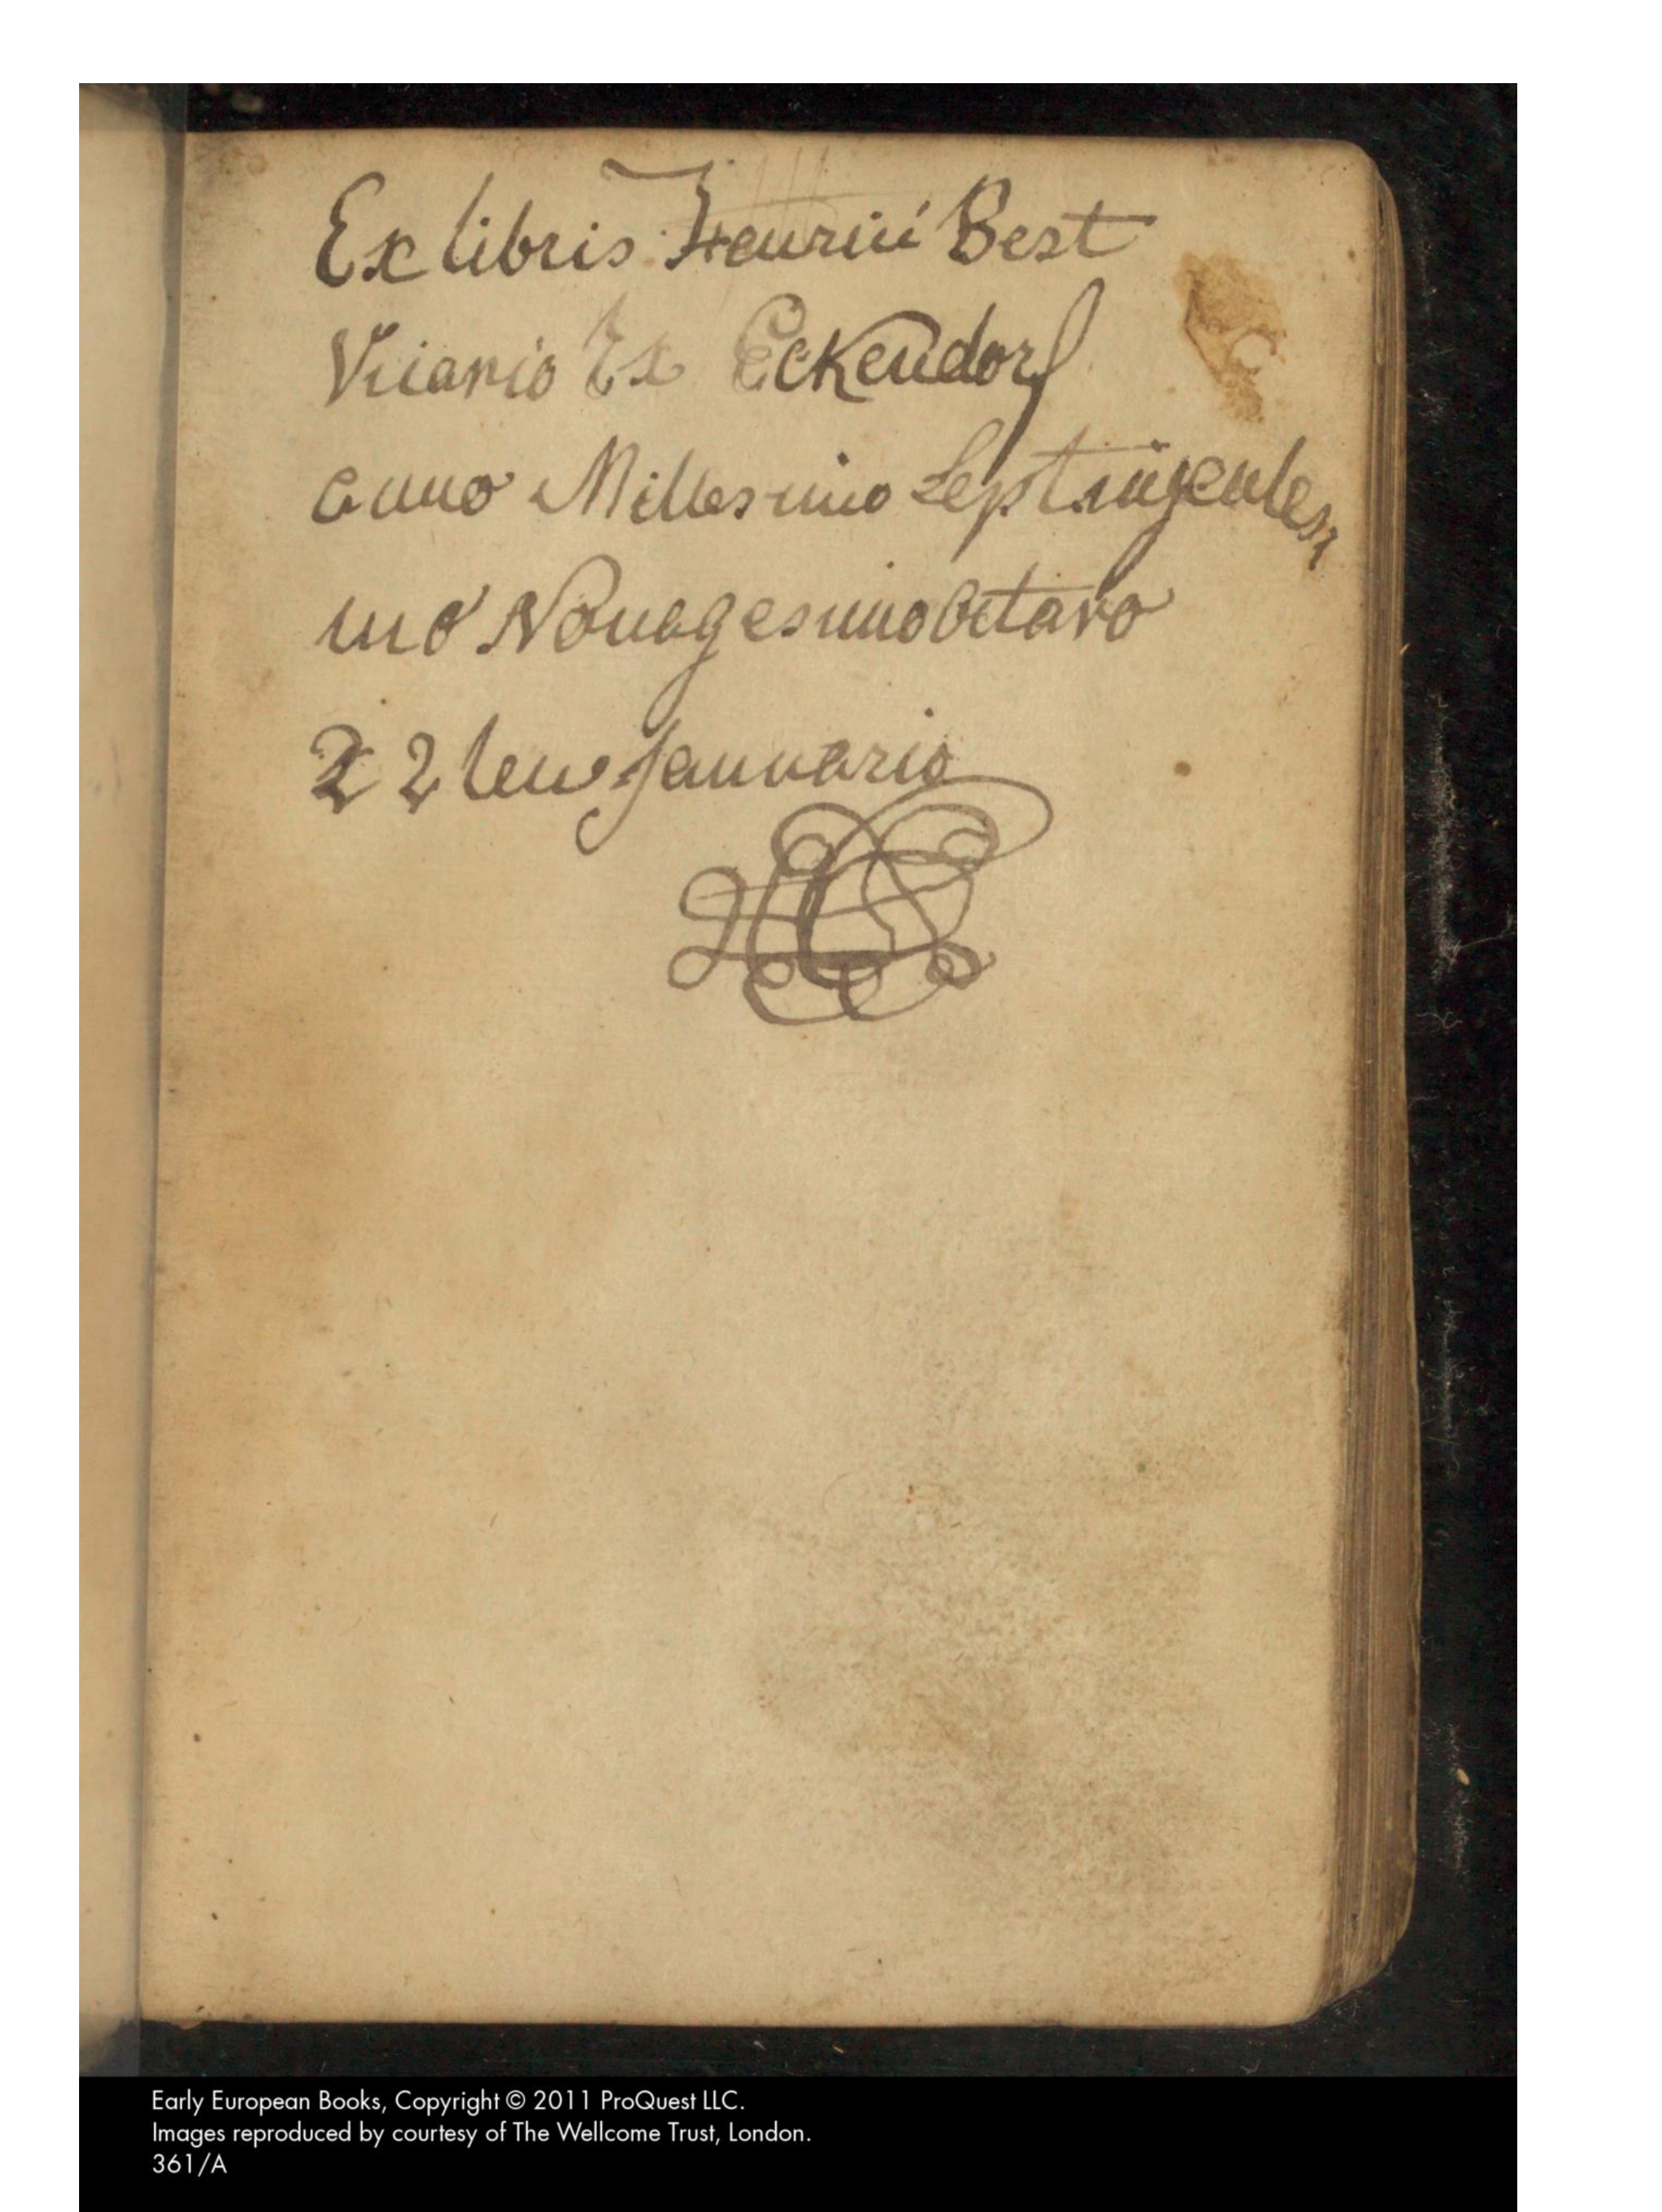 Ex libris Henrici Best
Vicario Ex Eckendorf
anno Millesimo Septingentesi
mo Nonagesimo octavo
22 ten Januario
Early European Books, Copyright © 2011 ProQuest LLC.
Images reproduced by courtesy of The Wellcome Trust, London.
361/A